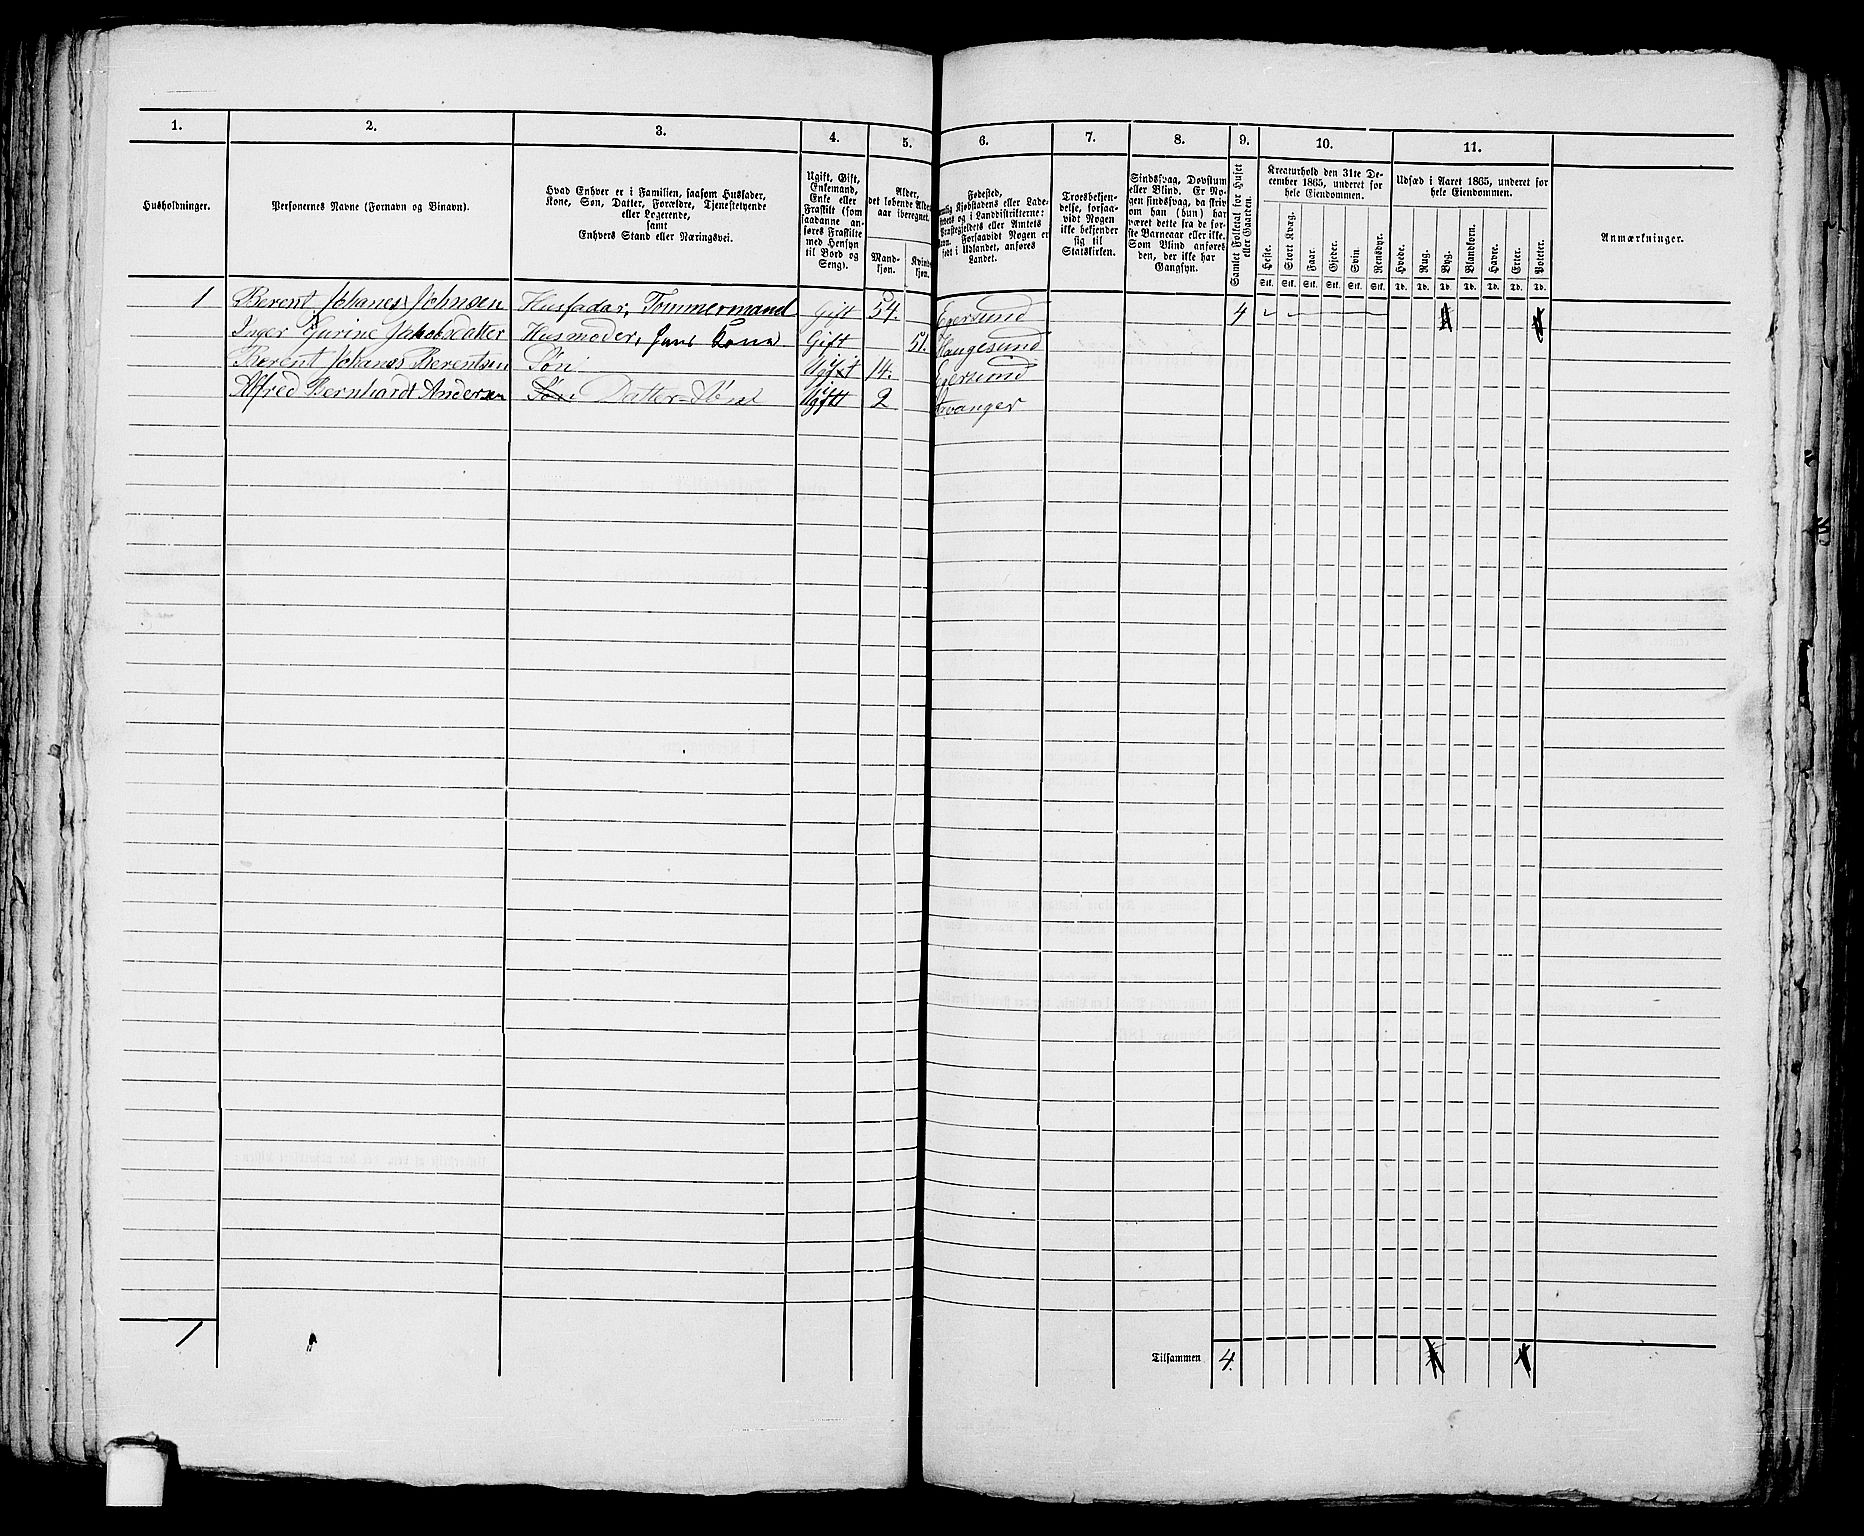 1. 2. 3. 4. 5. 6. 7. 8. 9. 10. 11.
Husholdninger.
Personernes Navne (Fornavn og Binavn).
Hvad Enhver er i Familien, saasom Husfader,
Kone, Søn, Datter, Forældre, Tjenestetyende
eller Logerende,
samt
Enhvers Stand eller Næringsvei.
Ugift, Gift,
Enkemand,
Enke eller
Fraskilt (som
saadanne an-
føres Fraskilte
med Hensyn
til Bord og
Seng).
Alder,
det løbende Alders-
aar iberegnet.
Mand-
kjøn.
Kvinde-
kjøn.
Fødested,
Kjøbstadens eller Lade-
og i Landdistrikterne:
Præstegjeldets eller Amtets
Navn. Forsaavidt Nogen er
født i Udlandet, anføres
Landet.
Troesbekjen-
delse, forsaa-
vidt Nogen
ikke bekjender
sig til
Statskirken.
Sindssvag, Døvstum
eller Blind. Er No-
gen sindssvag, da skriv
om han (hun) har
været dette fra de før-
ste Barneaar eller ikke.
Som Blind anføres
den, der ikke har
Gangsyn.
Samlet Folketal for Huset
eller Gaarden.
Kreaturhold den 31te De-
cember 1865, underet for
hele Eiendommen.
Heste. Stort Kvæg. Faar. Gjeder. Svin. Rensdyr.
Stk. Stk. Stk. Stk. Stk. Stk.
Udsæd i Aaret 1865, underet for
hele Eiendommen.
Hvede. Rug. Byg. Blandkorn. Havre. Erter. Poteter.
Td. Td. Td. Td. Td. Td. Td.
Anmærkninger.
1 Berent Johanes Johnsen Husfader, Tømmermand Gift 54. Egersund 4
Inger Gurine Jakobsdatter Husmoder, hans Kone Gift 51. Haugesund
Berent Johanes Berentsen Søn Ugift 14. Egersund
Alfred Bernhardt Andersen Søn Datter Søn Ugift 2 Stavanger
1 Tilsammen 4.